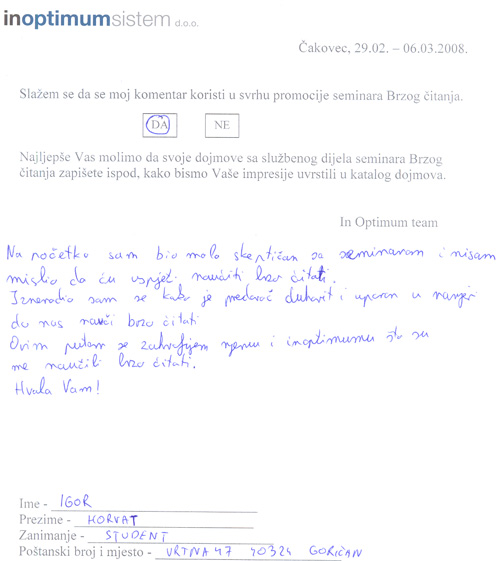 inoptimumsistem d.o.o.
Čakovec, 29.02. – 06.03.2008.
Slažem se da se moj komentar koristi u svrhu promocije seminara Brzog čitanja.
DA NE
Najljepše Vas molimo da svoje dojmove sa službenog dijela seminara Brzog
čitanja zapišete ispod, kako bismo Vaše impresije uvrstili u katalog dojmova.
In Optimum team
Na početku sam bio malo skeptičan sa seminarom i nisam
mislio da ću uspjeti naučiti brzo čitati.
Iznenadio sam se kako je predavač duhovit i uporan u namjeri
da nas nauči brzo čitati
Ovim putem se zahvaljujem njemu i inoptimumu što su
me naučili brzo čitati.
Hvala Vam!
Ime - IGOR
Prezime - HORVAT
Zanimanje - STUDENT
Poštanski broj i mjesto - VRTNA 47 40324 GORIČAN